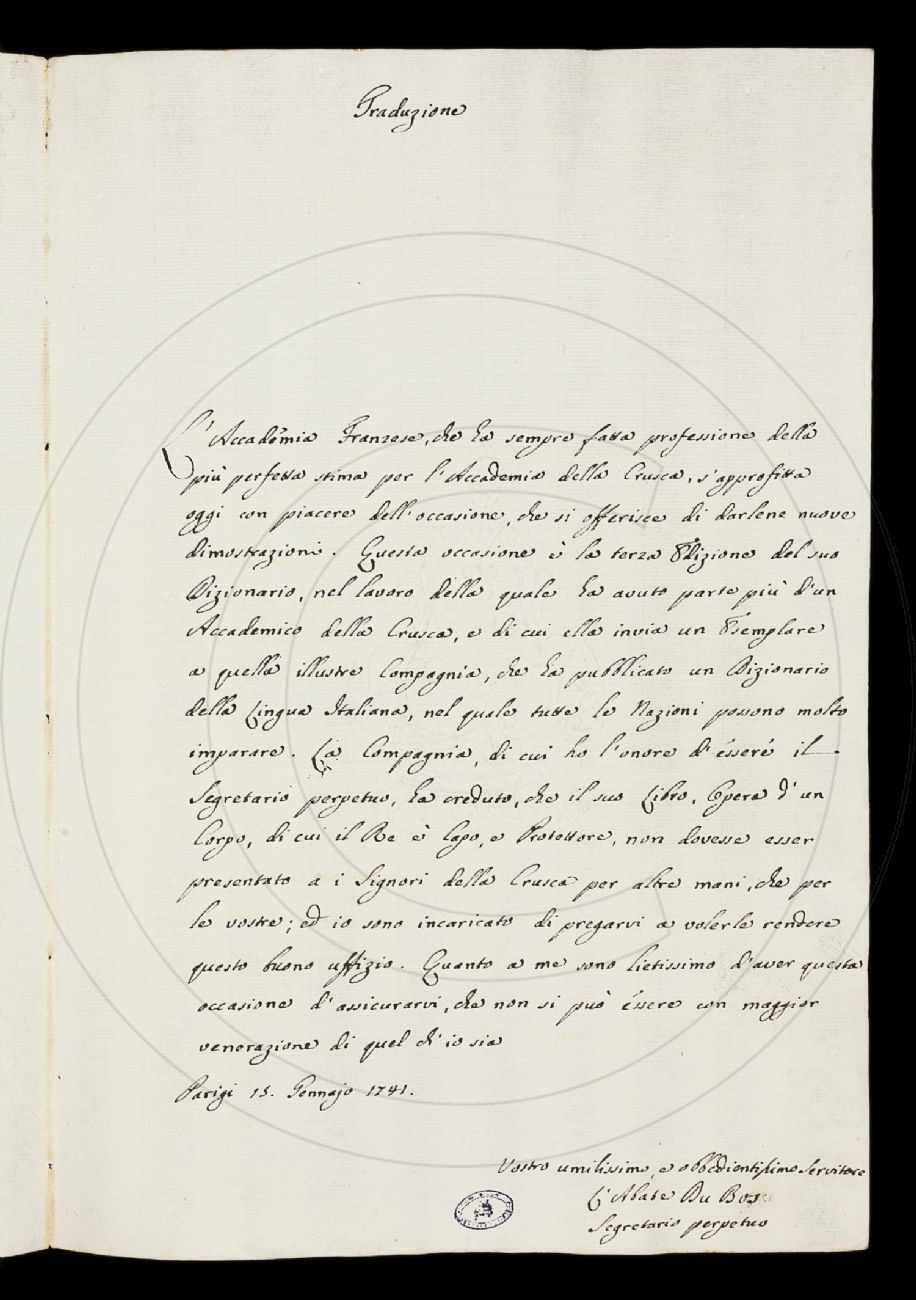 Traduzione
L'Accademia Franzese, che ha sempre fatta professione della
più perfetta stima per l'Accademia della Crusca, s'approfitta
oggi con piacere dell'occasione, che si offerisce di darlene nuove
dimostrazioni. Questa occasione è la terza Edizione del suo
Dizionario, nel lavoro della quale ha avuto parte più d'un
Accademico della Crusca, e di cui ella invia un Esemplare
a quella illustre Compagnia, che ha pubblicato un Dizionario
della Lingua Italiana, nel quale tutte le Nazioni possono molto
imparare. La Compagnia, di cui ho l'onore d'essere il
Segretario perpetuo, ha creduto, che il suo Libro, Opera d'un
Corpo, di cui il Re è Capo, e Protettore, non dovesse esser
presentato a i Signori della Crusca per altre mani, che per
le vostre; ed io sono incaricato di pregarvi a volerle rendere
questo buono uffizio. Quanto a me sono lietissimo d'aver questa
occasione d'assicurarvi, che non si può essere con maggior
venerazione di quel ch'io sia
Parigi 15. Gennajo 1741.
Vostro umilissimo, e obbedientissimo Servitore
L'Abate Du Bos
Segretario perpetuo